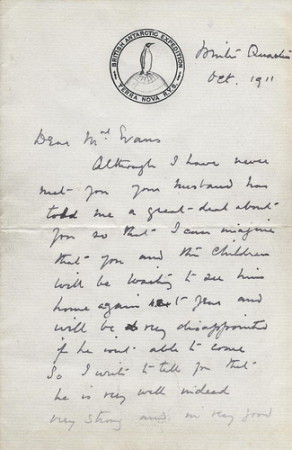 BRITISH ANTARCTIC EXPEDITION
TERRA NOVA R.Y.S.
Winter Quarters
Oct. 1911
Dear Mrs Evans
Although I have never
met you your husband has
told me a great deal about
you so that I can imagine
that you and the children
will be waiting to see him
home again next year and
will be very disappointed
if he isn't able to come
So I write to tell you that
he is very well indeed
very strong and in very good